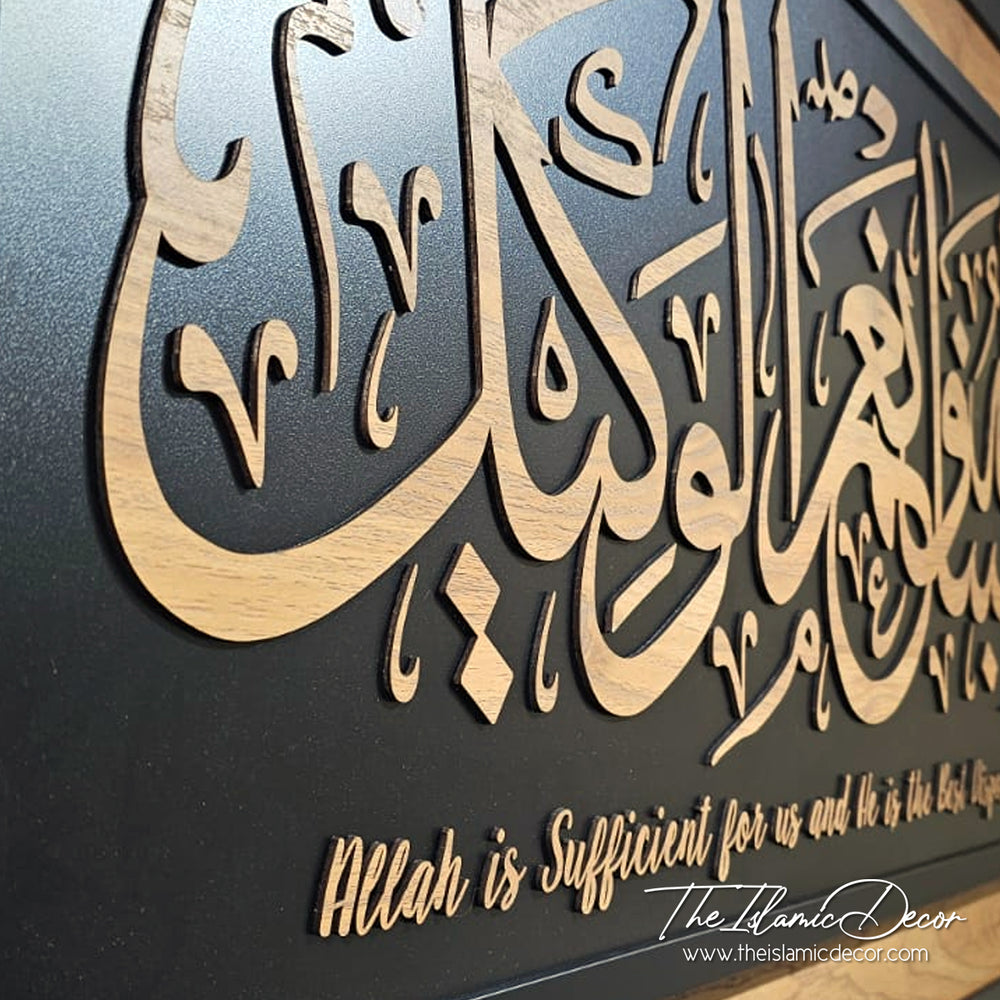 ونعم الوكيل
Allah is Sufficient for us and He is the Best
The Islamic Decor
www.theislamicdecor.com